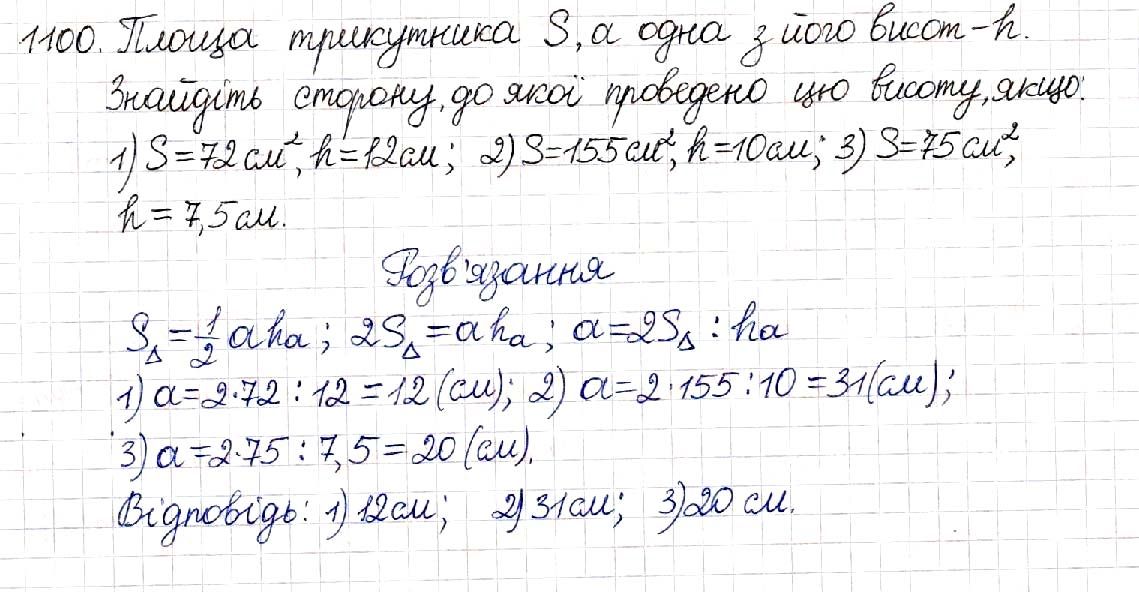 1100. Площа трикутника S, а одна з його висот – h.
Знайдіть сторону, до якої проведено цю висоту, якщо:
1) S=72 см², h=12см; 2) S=155см², h=10см; 3) S=75см²,
h = 7,5см.
Розв'язання
S△ = 1/2 aha; 2S△ = aha; a=2S△ : ha
1) a=2·72 : 12 = 12 (см); 2) a=2·155 : 10 = 31(см);
3) a=2·75 : 7,5 = 20 (см).
Відповідь: 1) 12см; 2) 31см; 3) 20 см.